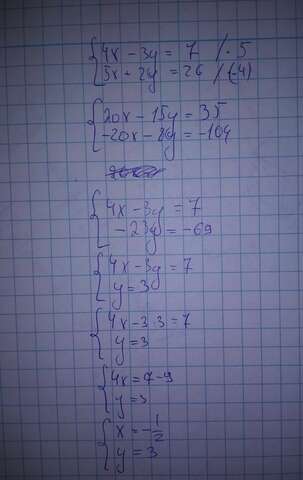 4x - 3y = 7 / · 5
5x + 2y = 26 / (-4)
20x - 15y = 35
-20x - 8y = -104
4x - 3y = 7
-23y = -69
4x - 3y = 7
y = 3
4x - 3·3 = 7
y = 3
4x = 7 - 9
y = 3
x = -1/2
y = 3